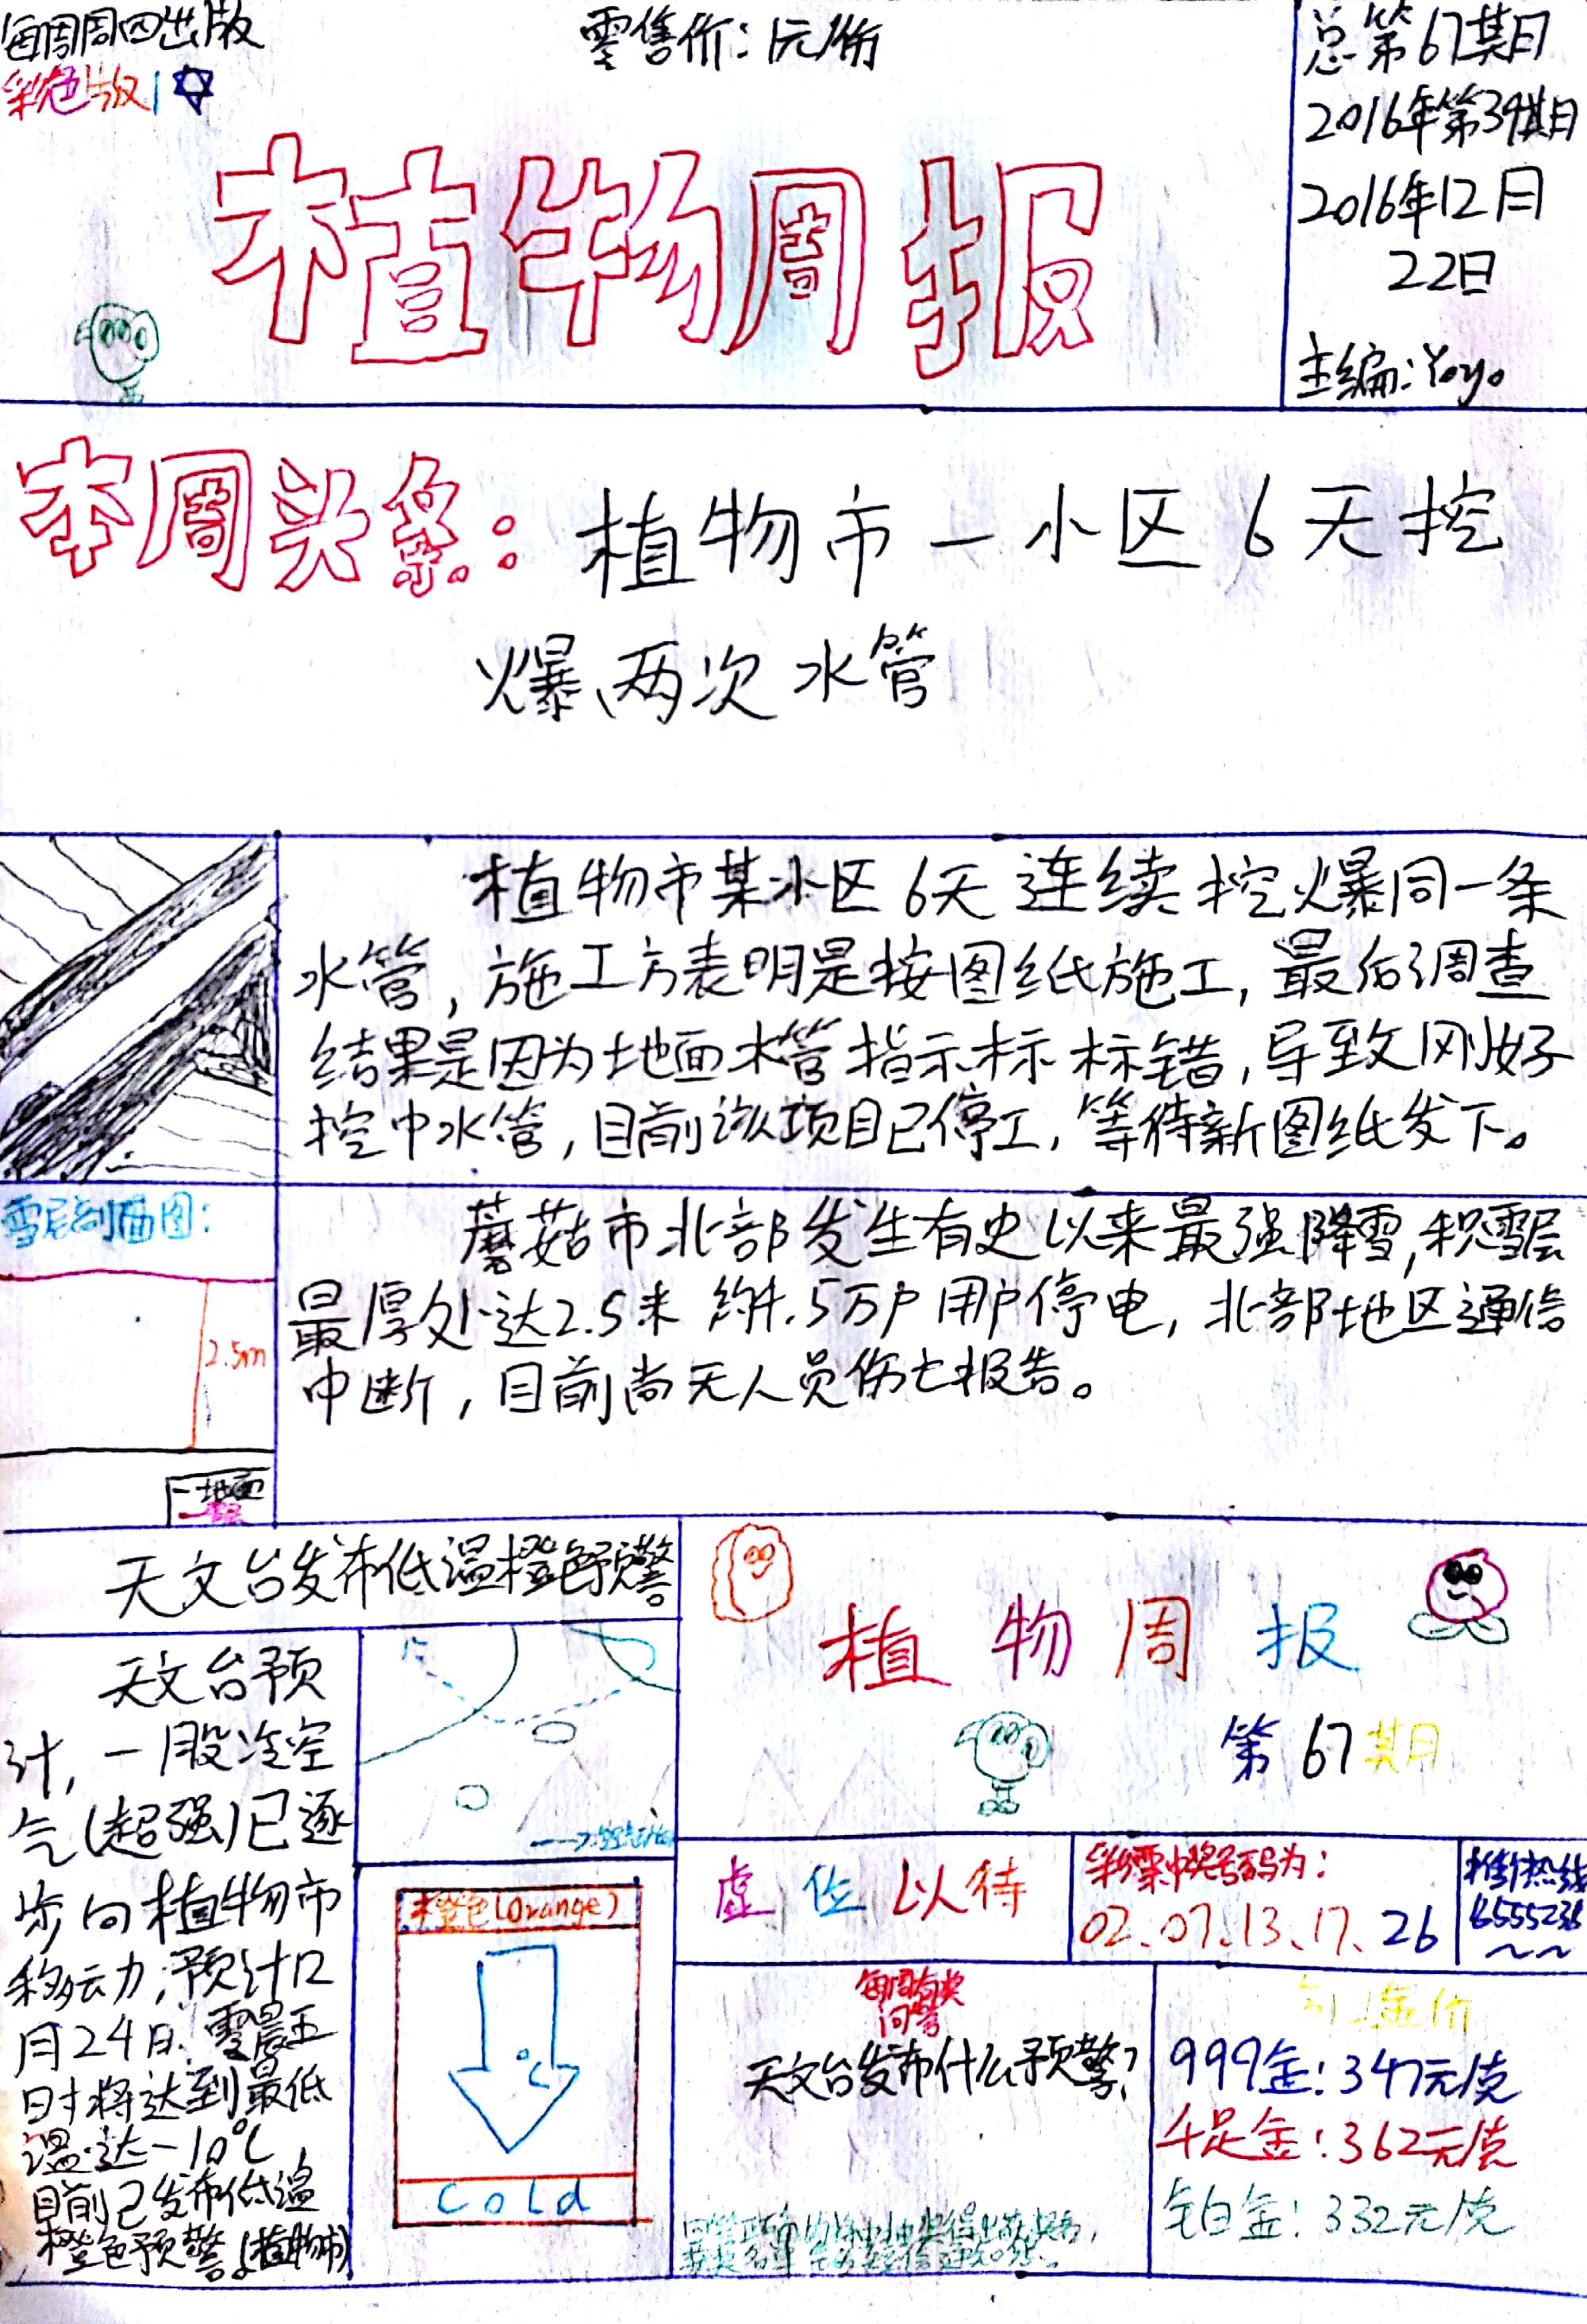 每周周四出版
彩色版
零售价：1元/份
总第67期
2016年第39期
2016年12月
22日
主编：Yoyo
植物周报
本周头条：植物市一小区6天挖
爆两次水管
植物市某小区6天连续挖爆同一条
水管，施工方表明是按图纸施工，最后调查
结果是因为地面水管指示标标错，导致刚好
挖中水管，目前该项目已停工，等待新图纸发下。
雪层剖面图：
2.5m
—地面
蘑菇市北部发生有史以来最强降雪，积雪层
最厚处达2.5米 约1.5万户用户停电，北部地区通信
中断，目前尚无人员伤亡报告。
天文台发布低温橙色预警
天文台预
计，一股冷空
气（超强）已逐
步向植物市
移动，预计12
月24日零晨五
时将达到最低
温达-10℃
目前已发布低温
橙色预警。（植物市）
橙色（Orange）
℃
Cold
植物周报
第67期
虚位以待
彩票中奖号码为：
02、07、13、17、26
每周有奖
问答
天文台发布什么预警？
金价
999金：347元/克
千足金：362元/克
铂白金：332元/克